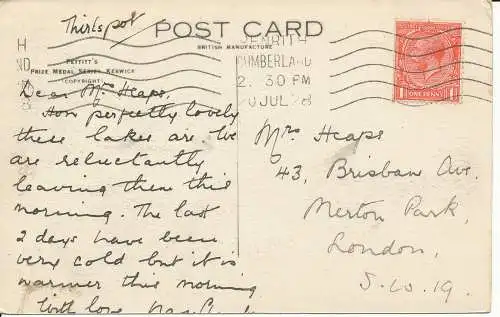 Thirlspot
POST CARD
BRITISH MANUFACTURE
PETTITT'S
PRIZE MEDAL SERIES KESWICK
(COPYRIGHT)
PENRITH
CUMBERLAND
2.30 PM
JUL 28
ONE PENNY
Dear Mrs Heaps,
How perfectly lovely
these lakes are. We
are reluctantly
leaving them this
morning. The last
2 days have been
very cold but it is
warmer this morning
With love
Mrs Heaps
43, Brisbane Ave.
Merton Park,
London,
S.W. 19.